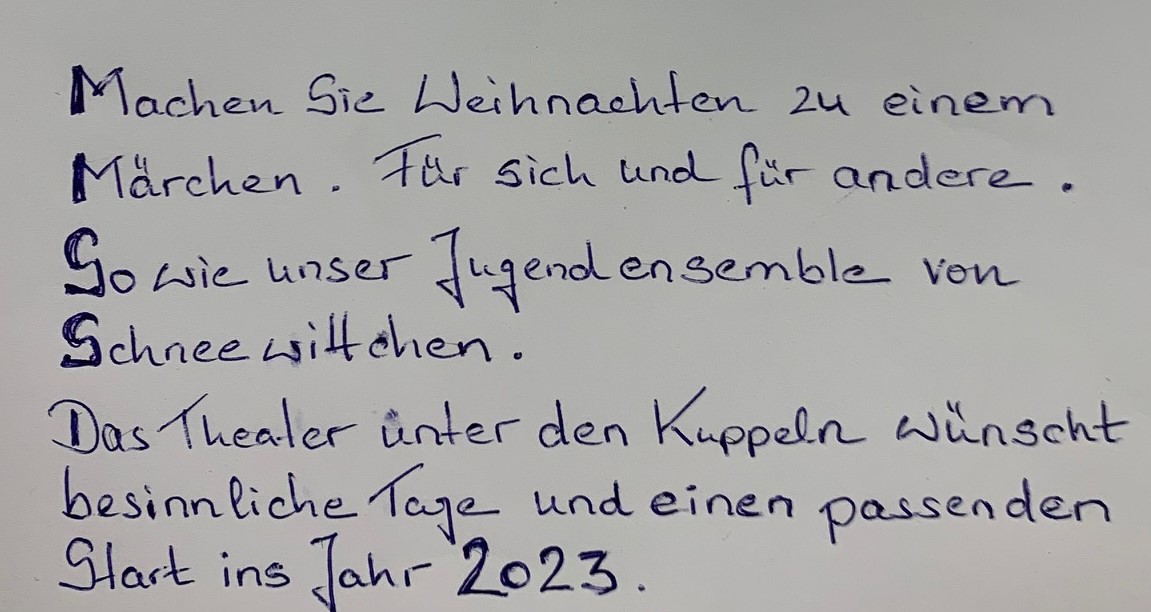 Machen Sie Weihnachten zu einem
Märchen. Für sich und für andere.
So wie unser Jugendensemble von
Schneewittchen.
Das Theater unter den Kuppeln wünscht
besinnliche Tage und einen passenden
Start ins Jahr 2023.